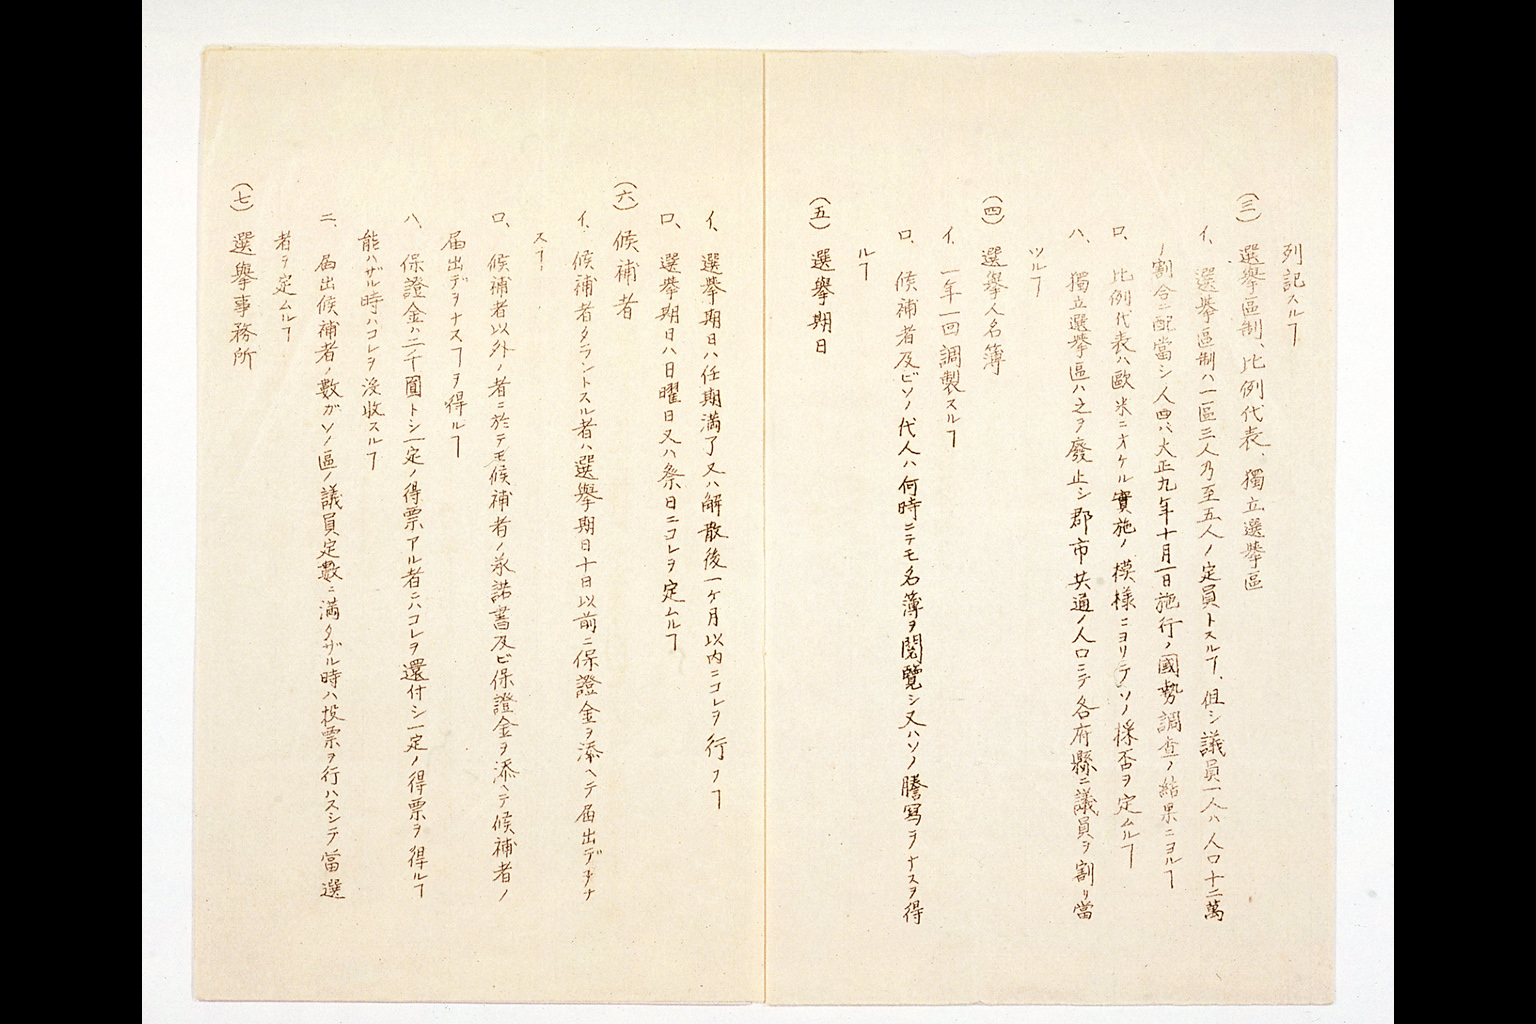 列記スルヿ
(三) 選擧區制、比例代表、獨立選擧區
イ、選擧區制ハ一區三人乃至五人ノ定員トスルヿ、但シ議員一人ハ人口十二萬
ノ割合ニ配當シ人口ハ大正九年十月一日施行ノ國勢調査ノ結果ニヨルヿ
ロ、比例代表ハ歐米ニオケル實施ノ模樣ニヨリテソノ採否ヲ定ムルヿ
ハ、獨立選擧區ハ之ヲ廢止シ郡市共通ノ人口ニテ各府縣ニ議員ヲ割リ當
ツルヿ
(四) 選擧人名簿
イ、一年一回調製スルヿ
ロ、候補者及ビソノ代人ハ何時ニテモ名簿ヲ閲覽シ又ハソノ謄寫ヲナスヲ得
ルヿ
(五) 選擧期日
イ、選擧期日ハ任期滿了又ハ解散後一ケ月以内ニコレヲ行フヿ
ロ、選擧期日ハ日曜日又ハ祭日ニコレヲ定ムルヿ
(六) 候補者
イ、候補者タラントスル者ハ選擧期日十日以前ニ保證金ヲ添ヘテ届出デヲナ
スヿ
ロ、候補者以外ノ者ニ於テモ候補者ノ承諾書及ビ保證金ヲ添ヘテ候補者ノ
届出デヲナスヿヲ得ルヿ
ハ、保證金ハ二千圓トシ一定ノ得票アル者ニハコレヲ還付シ一定ノ得票ヲ得ルヿ
能ハザル時ハコレヲ沒收スルヿ
ニ、届出候補者ノ數ガソノ區ノ議員定數ニ滿タザル時ハ投票ヲ行ハスシテ當選
者ヲ定ムルヿ
(七) 選擧事務所